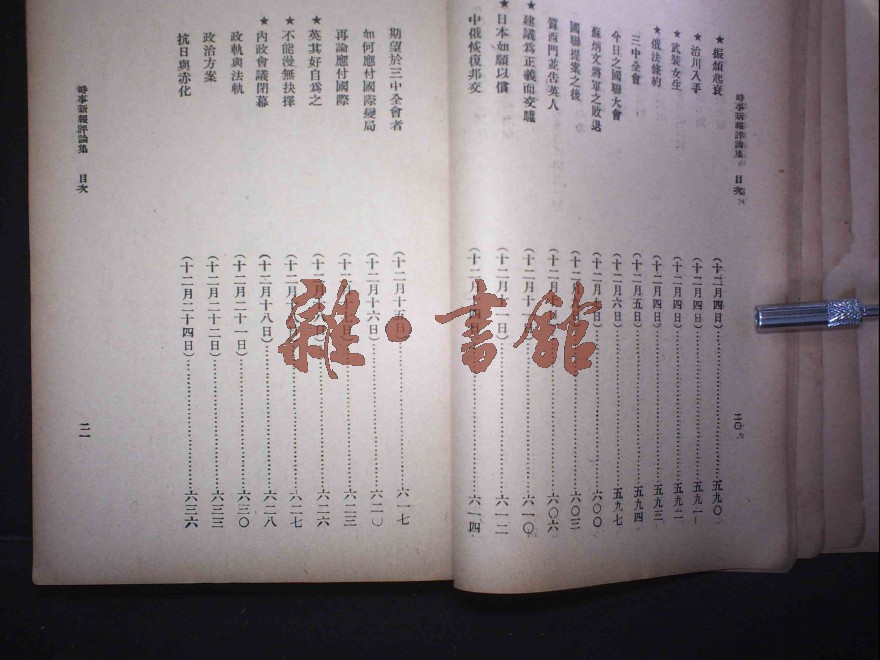 時事新報評論集 目次 二〇
★振頹起衰 (十二月四日)……五九〇
★治川入手 (十二月四日)……五九一
★武裝女生 (十二月四日)……五九二
★俄法條約 (十二月四日)……五九三
三中全會 (十二月五日)……五九四
今日之國聯大會 (十二月六日)……五九七
蘇炳文將軍之敗退 (十二月 日)……六〇〇
國聯提案之後 (十二月 日)……六〇三
賀西門並告英人 (十二月 日)……六〇六
★建議爲正義而交驩 (十二月十一日)……六一〇
★日本如願以償 (十二月 日)……六一二
中俄恢復邦交 (十二月十四日)……六一四
期望於三中全會者 (十二月十五日)……六一七
如何應付國際變局 (十二月十六日)……六二〇
再論應付國際 (十二月 日)……六二三
★英其好自爲之 (十二月 日)……六二六
★不能漫無抉擇 (十二月 日)……六二七
★內政會議閉幕 (十二月十八日)……六二八
政軌與法軌 (十二月二十一日)……六三〇
政治方案 (十二月二十二日)……六三三
抗日與赤化 (十二月二十四日)……六三六
時事新報評論集 目次 二一
雜·書館